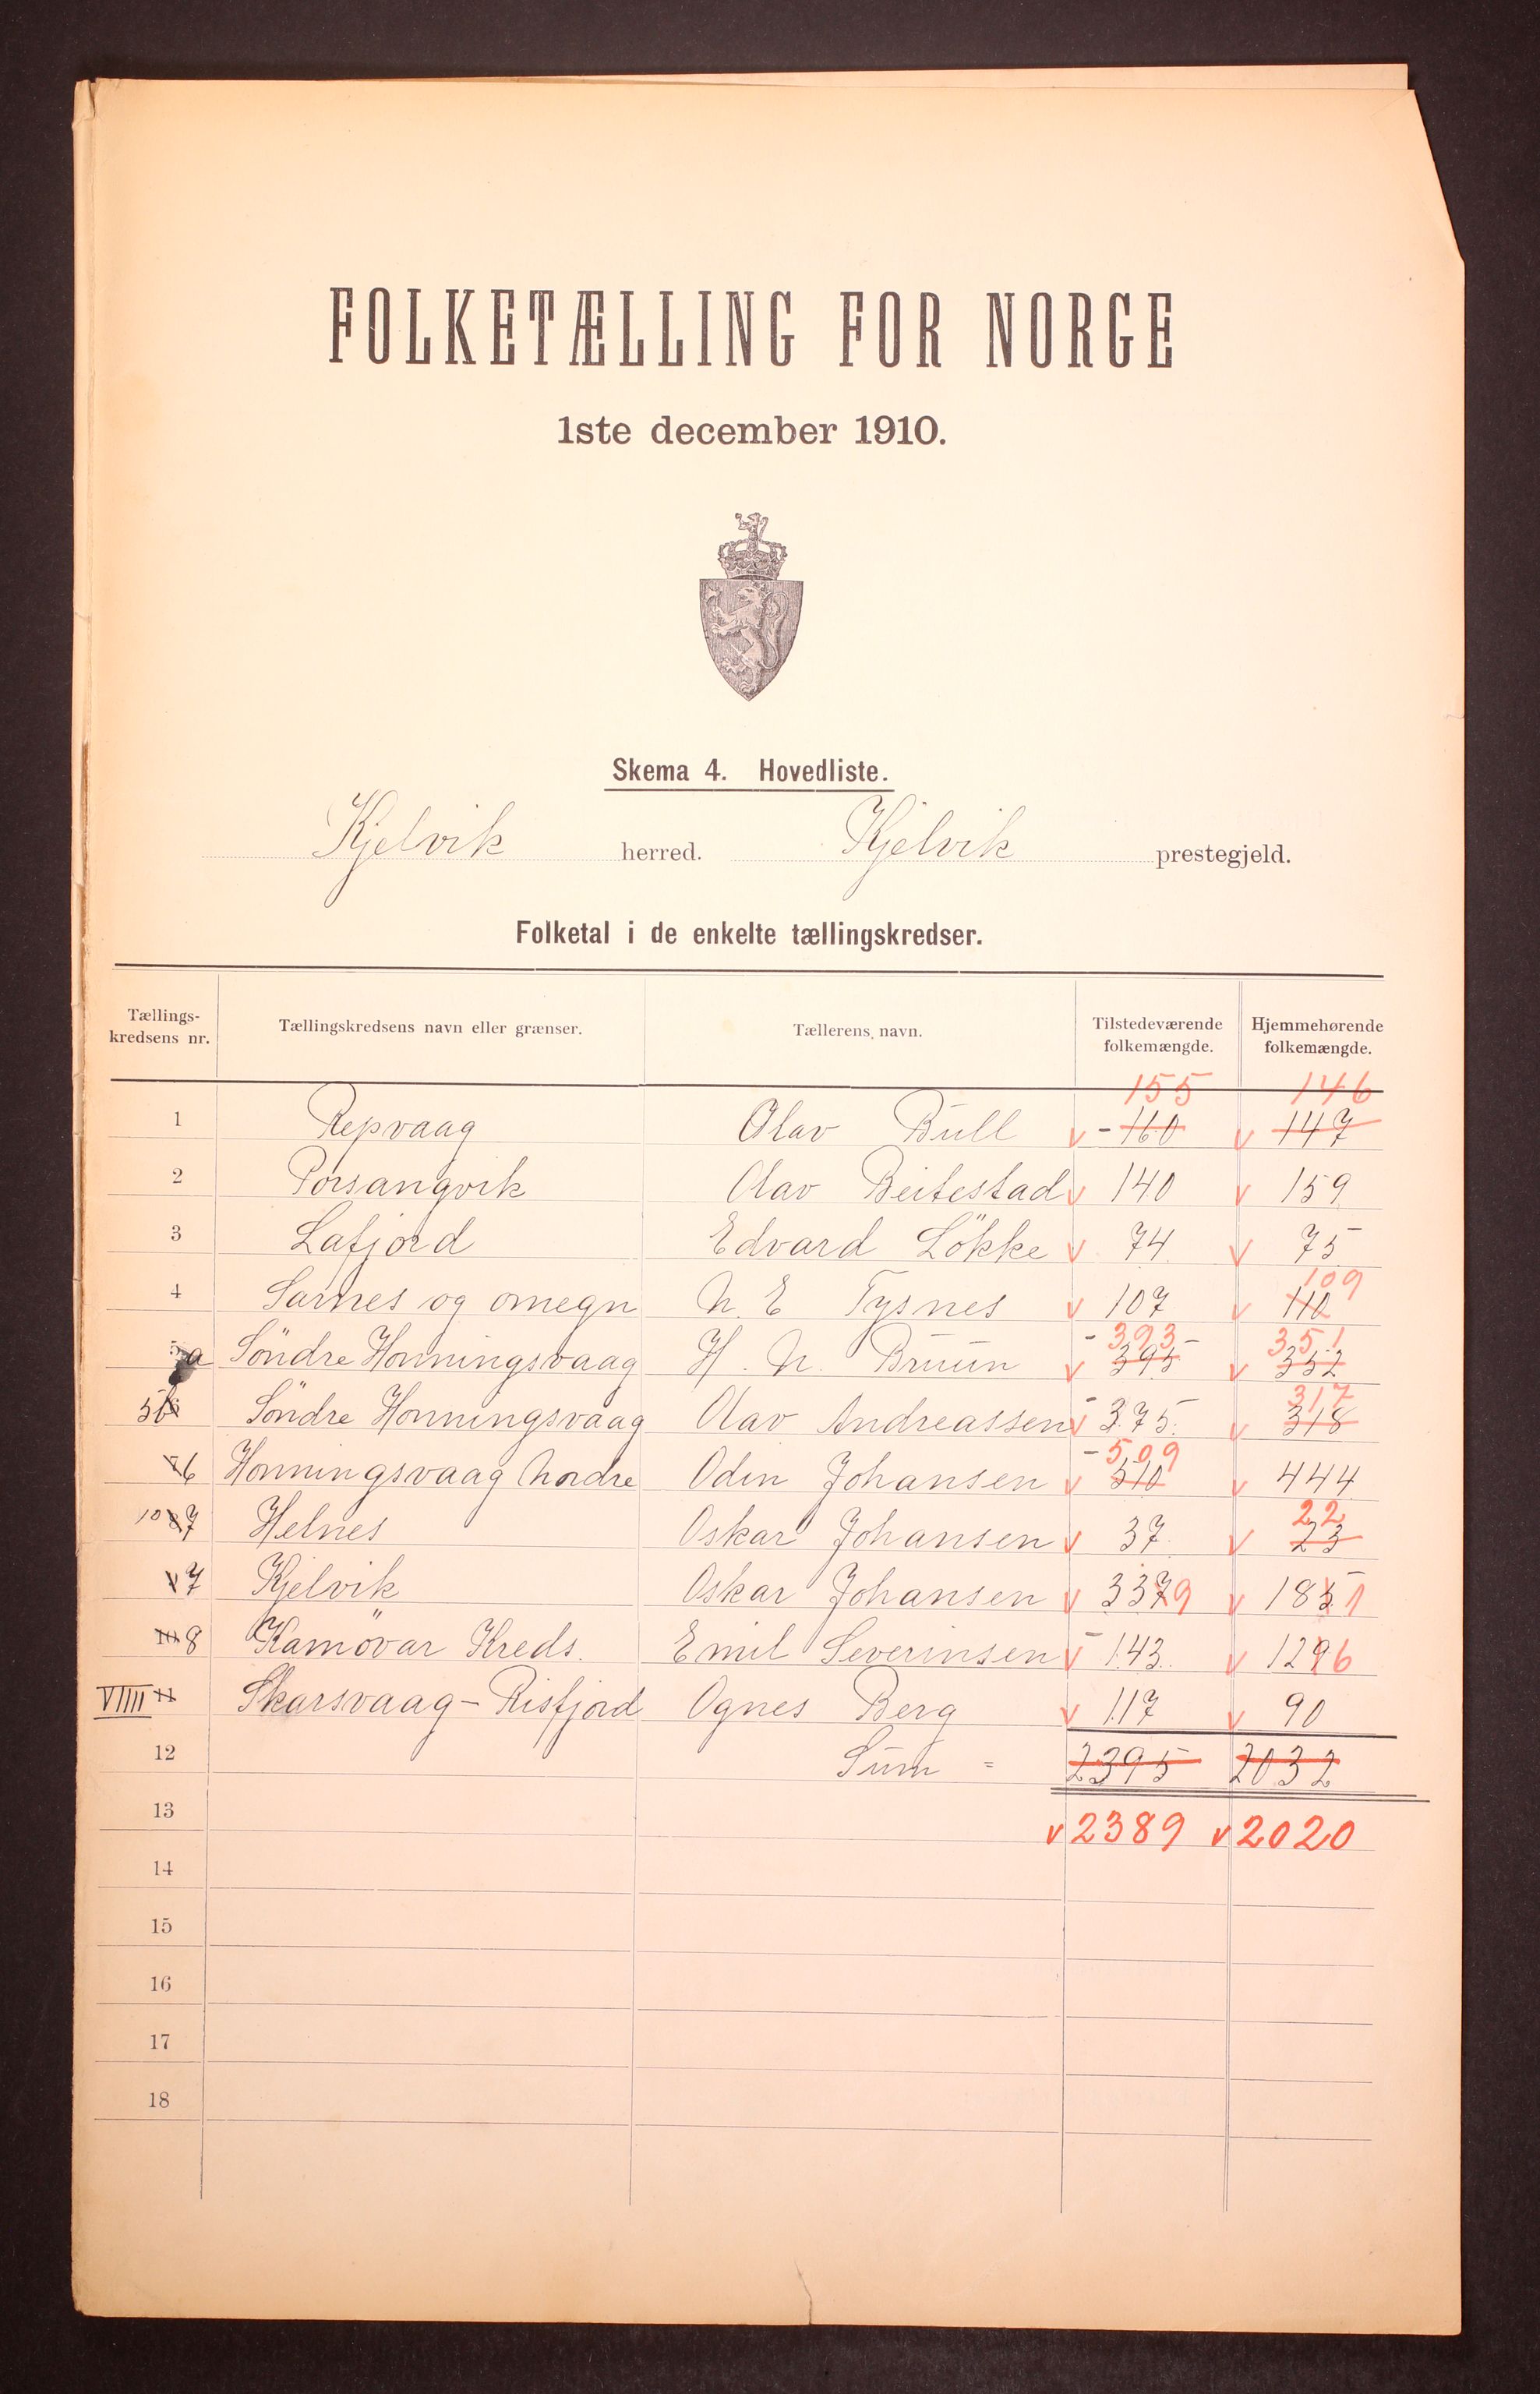 FOLKETÆLLING FOR NORGE
1ste december 1910.
Skema 4. Hovedliste.
Kjelvik herred. Kjelvik prestegjeld.
Folketal i de enkelte tællingskredser.
Tællings-kredsens nr. Tællingskredsens navn eller grænser. Tællerens navn. Tilstedeværende folkemængde. Hjemmehørende folkemængde.
155 146
1 Repvaag Olav Bull v - 160 v 147
2 Porsangvik Olav Beitestad v 140 v 159
3 Lafjord Edvard Lökke v 74 v 75
109
4 Sarnes og omegn N. E Tysnes v 107 v 110
- 393 - 351
5a Söndre Honningsvaag H. N. Bruun v 395 v 352
317
5b Söndre Honningsvaag Olav Andreassen v 375. v 318
- 509
7 6 Honningsvaag Nordre Odin Johansen v 510 v 444
22
10 8 7 Helnes Oskar Johansen v 37 v 23
7 Kjelvik Oskar Johansen v 3379 v 1851
10 8 Kamövar Kreds. Emil Severinsen v 143. v 1296
VIIII 11 Skarsvaag - Risfjord Ognes Berg v 117 v 90
12 Sum = 2395 2032
13 v 2389 v 2020
14
15
16
17
18